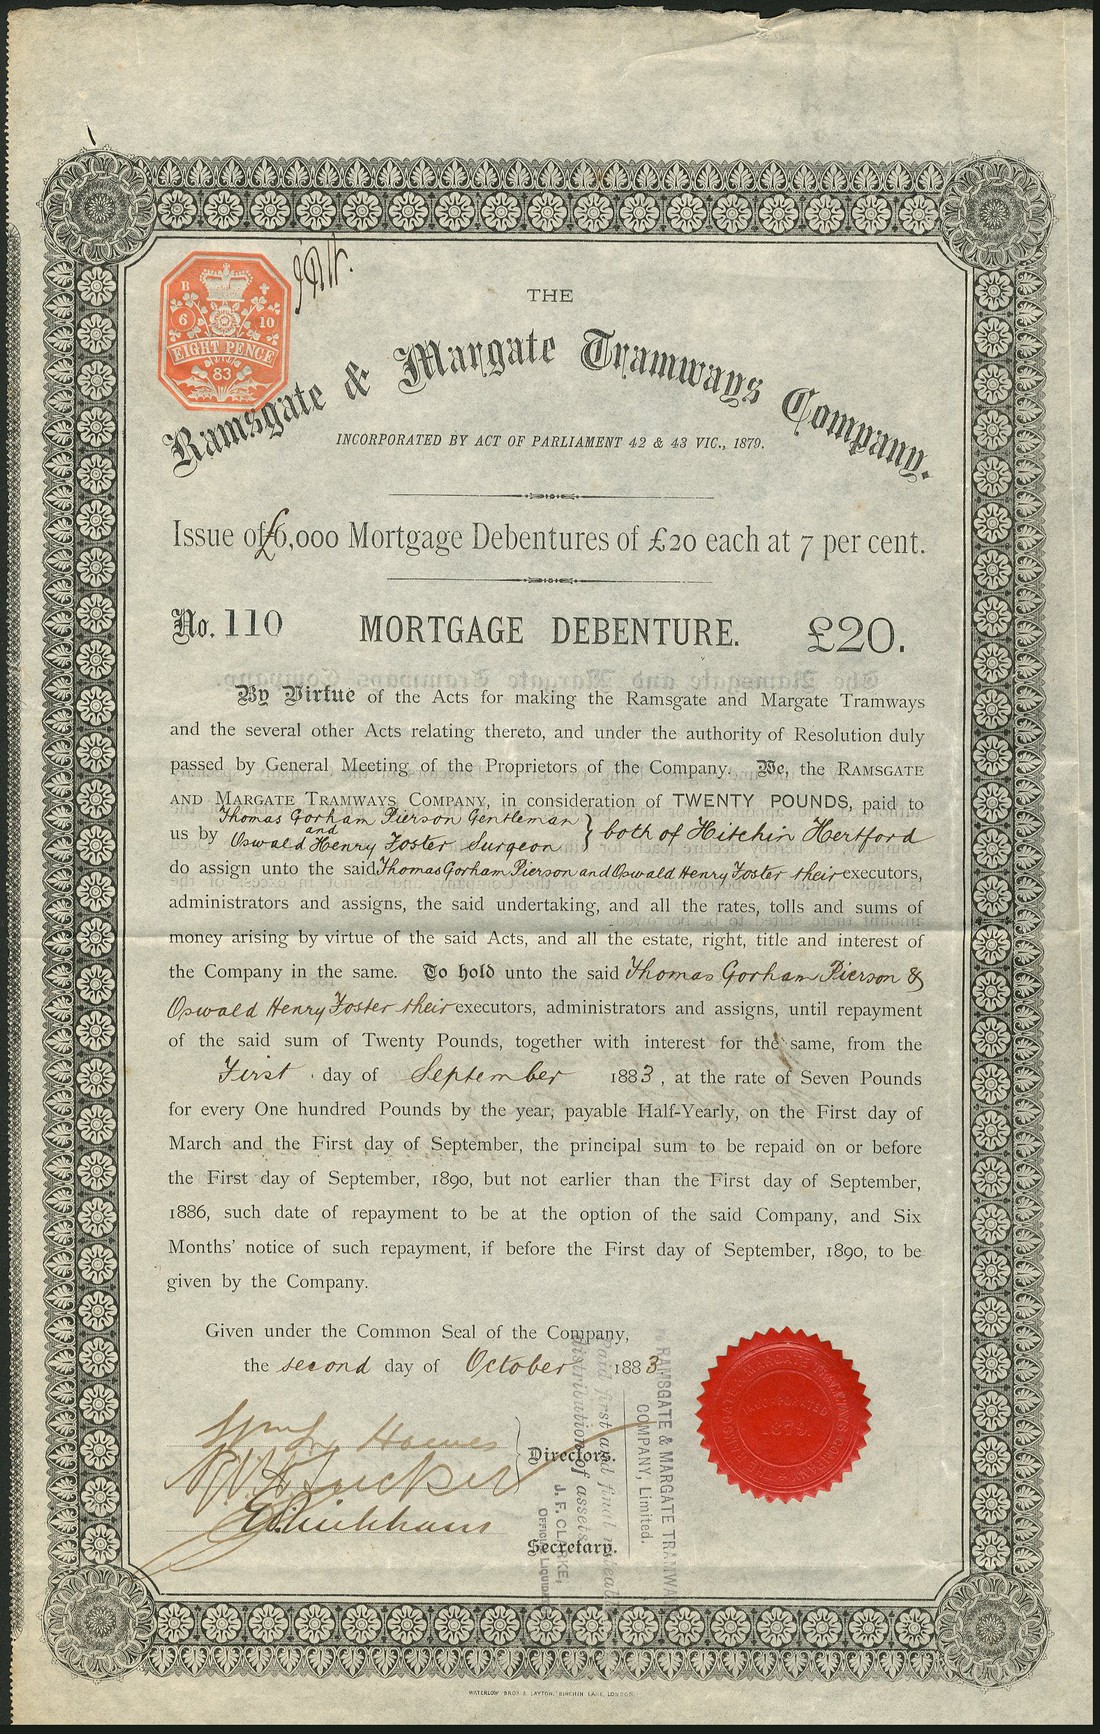 B
6 10
EIGHT PENCE
83
THE
Ramsgate & Margate Tramways Company.
INCORPORATED BY ACT OF PARLIAMENT 42 & 43 VIC., 1879.
Issue of £6,000 Mortgage Debentures of £20 each at 7 per cent.
No. 110 MORTGAGE DEBENTURE. £20.
By Virtue of the Acts for making the Ramsgate and Margate Tramways
and the several other Acts relating thereto, and under the authority of Resolution duly
passed by General Meeting of the Proprietors of the Company. We, the RAMSGATE
AND MARGATE TRAMWAYS COMPANY, in consideration of TWENTY POUNDS, paid to
us by Thomas Gorham Pierson Gentleman and Oswald Henry Foster Surgeon } both of Hitchin Hertford
do assign unto the said Thomas Gorham Pierson and Oswald Henry Foster their executors,
administrators and assigns, the said undertaking, and all the rates, tolls and sums of
money arising by virtue of the said Acts, and all the estate, right, title and interest of
the Company in the same. To hold unto the said Thomas Gorham Pierson &
Oswald Henry Foster their executors, administrators and assigns, until repayment
of the said sum of Twenty Pounds, together with interest for the same, from the
First day of September 1883, at the rate of Seven Pounds
for every One hundred Pounds by the year, payable Half-Yearly, on the First day of
March and the First day of September, the principal sum to be repaid on or before
the First day of September, 1890, but not earlier than the First day of September,
1886, such date of repayment to be at the option of the said Company, and Six
Months' notice of such repayment, if before the First day of September, 1890, to be
given by the Company.
Given under the Common Seal of the Company,
the second day of October 1883
Howes
Directors.
Secretary.
RAMSGATE & MARGATE TRAMWAYS
COMPANY, Limited.
Paid first and final
distribution of assets
J. F. CLARKE,
OFFICIAL LIQUIDATOR
1879.
WATERLOW BROS. & LAYTON, BIRCHIN LANE, LONDON.